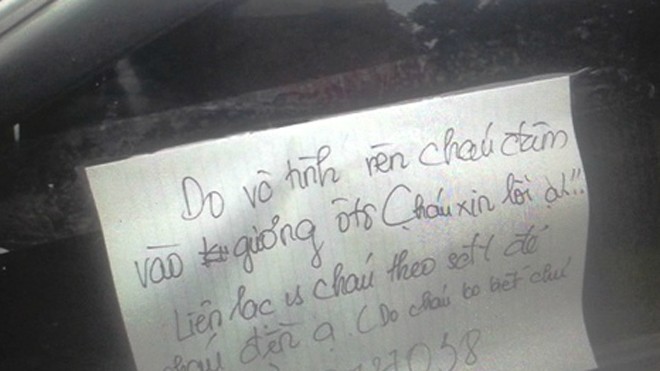 Do vô tình nên cháu đâm
vào gương ôtô Cháu xin lỗi ạ!!
Liên lạc vs cháu theo sđt để
cháu đền ạ. (Do cháu ko biết chú
27058